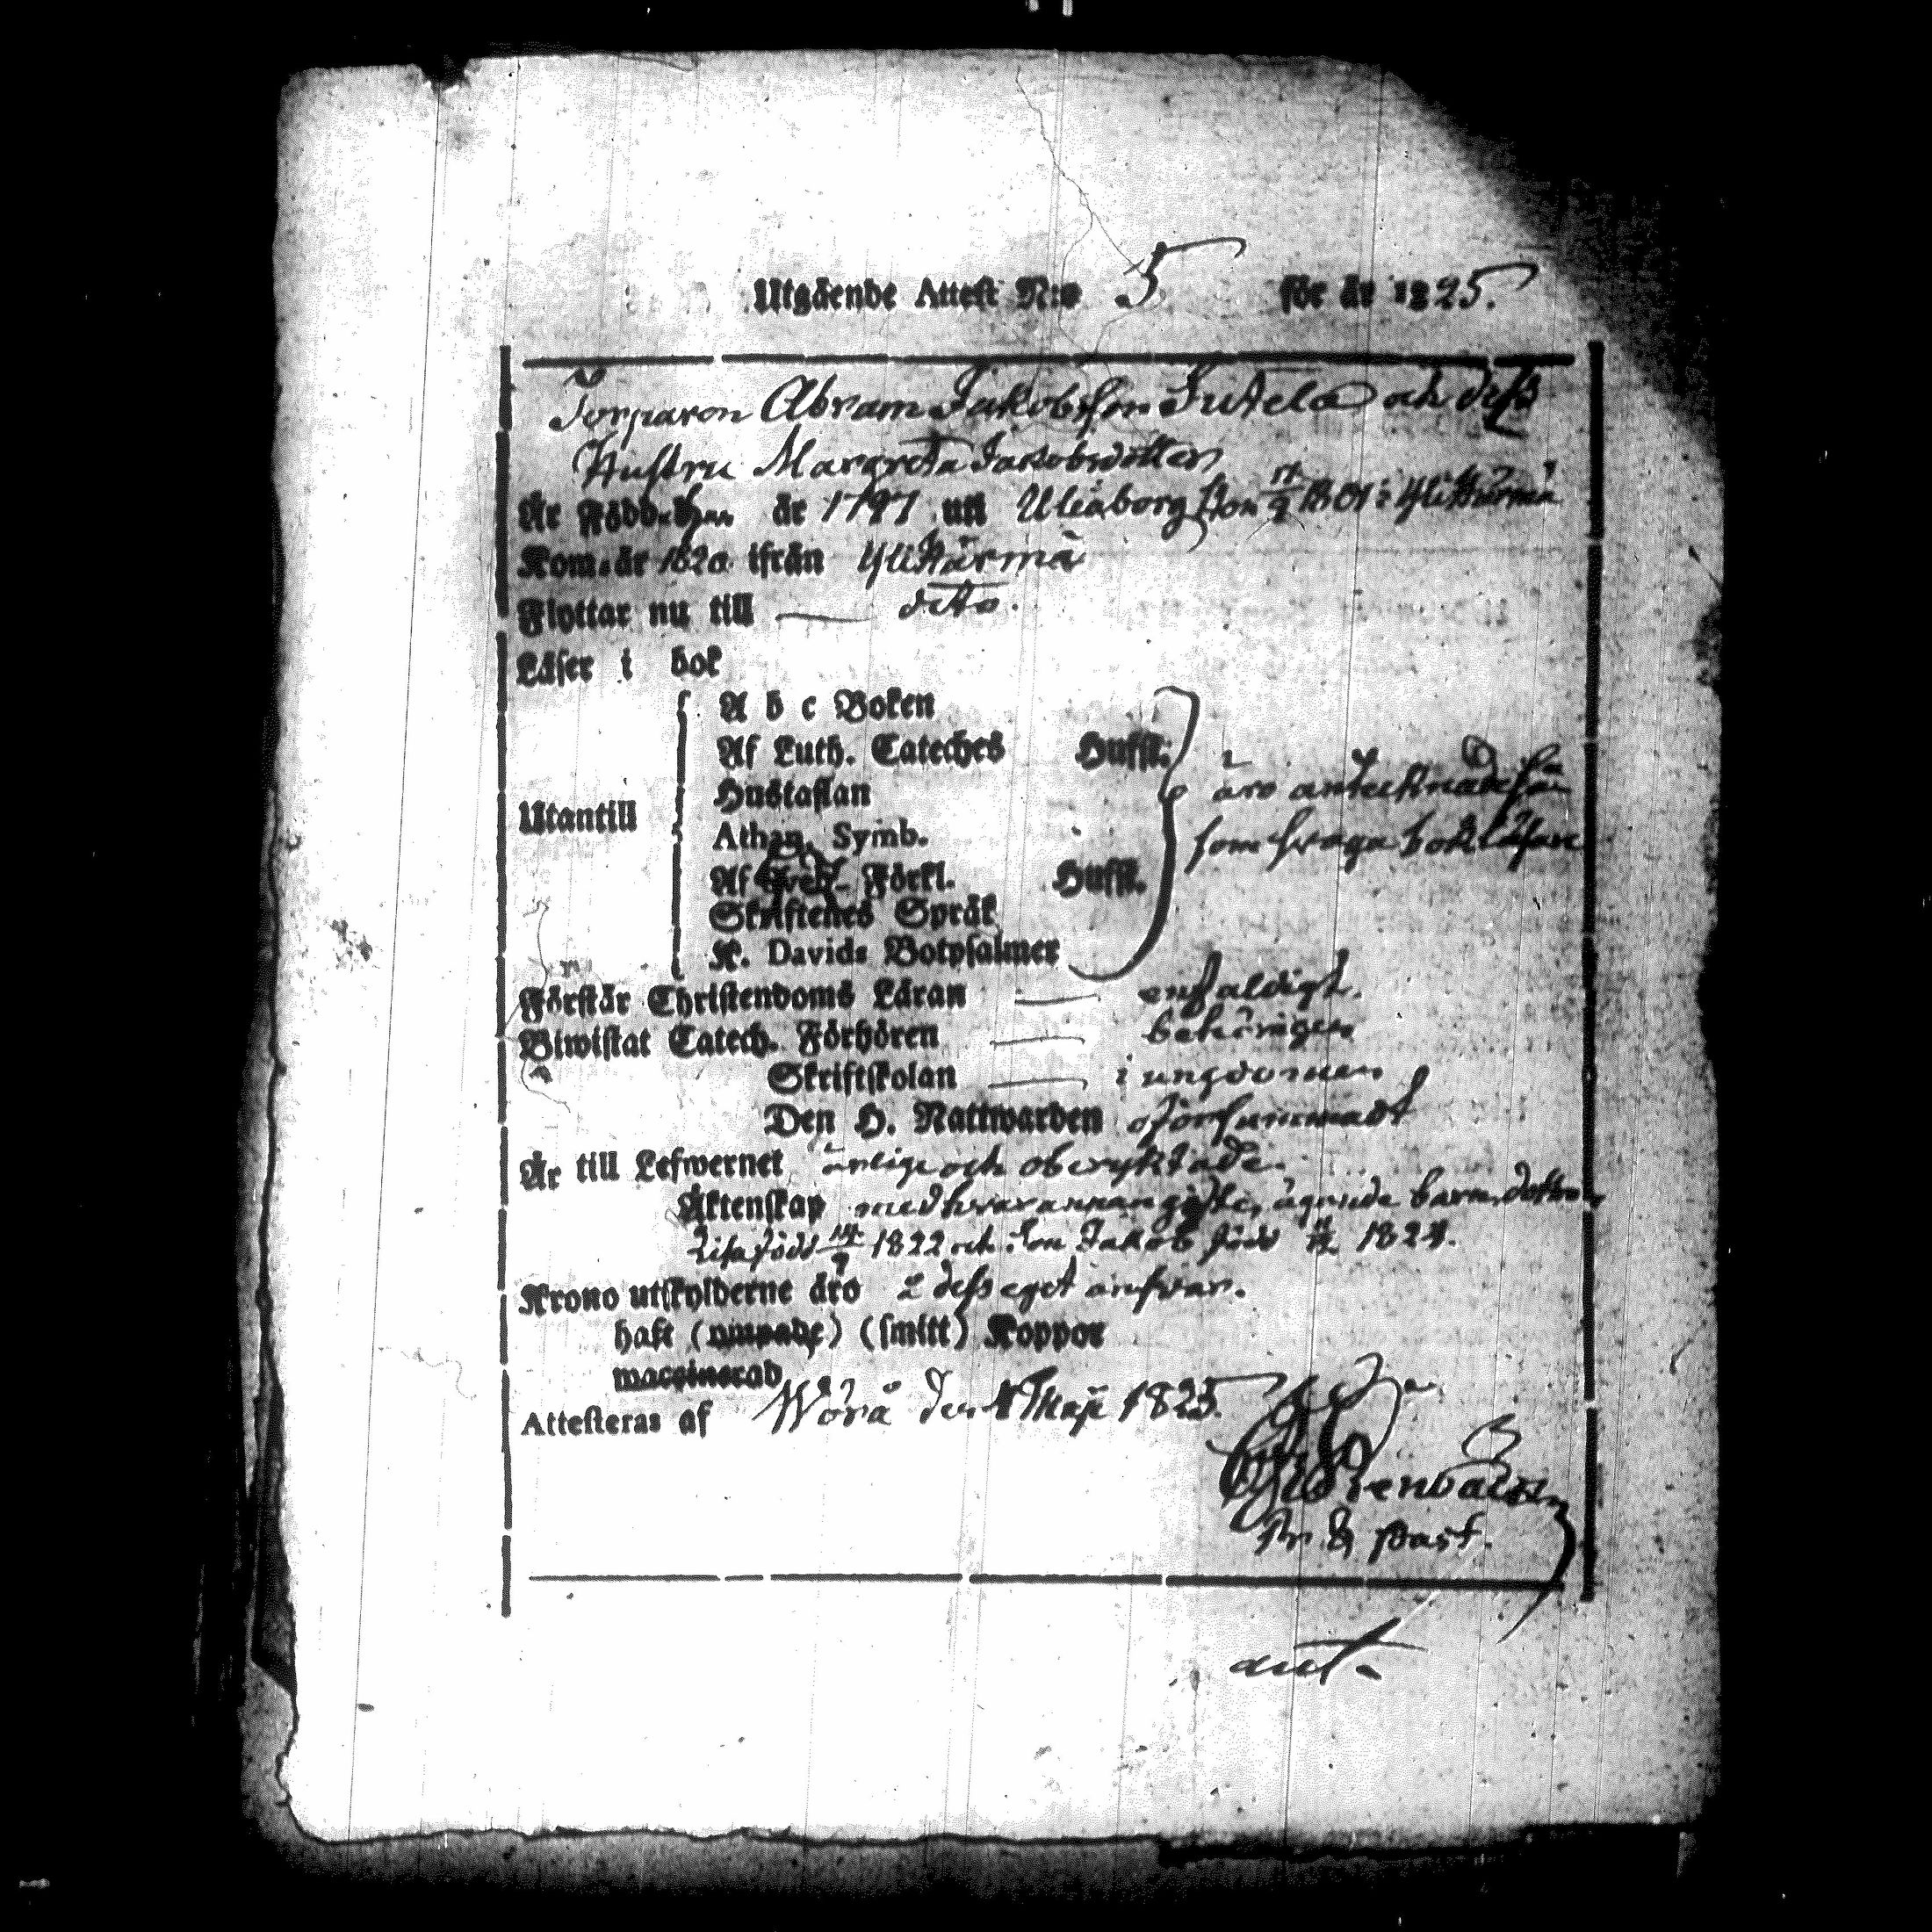 Utgående Attest N:o 5 för år 1825.
Torparen Abram Jakobsson Jutela och dess
Hustru Margreta Jakobsdotter
Är Född, han år 1797 uti Uleåborg hon 11/9 1801 i Ylikärmä
Kom år 1820 ifrån Ylikärmä
Flyttar nu till — ditto.
Läser i bok
Utantill
A b c Boken
Af Luth. Cateches Hufst.
Hustaflan
Athan. Symb.
Af Förkl. Hufst.
Skriftenes Språk
K. Davids Botpsalmer
äro antecknade så
som svaga bokläsare
Förstår Christendoms Läran — enfaldigt.
Biwistat Catech. Förhören — behörigen
Skriftskolan — i ungdomen
Den H. Nattwarden oförsummadt
Är till Lefwernet ärlige och oberyktade.
Äktenskap med hvarannan gifte, ägande barn, dottren
Lisa född 14/9 1822 och Son Jakob född 1824.
Krono utskylderne äro å dess eget answar.
haft (ympade) (smitt) Koppor
vaccinerad
Attesteras af Wörå den 4 Maji 1825.
Pr. & Past.